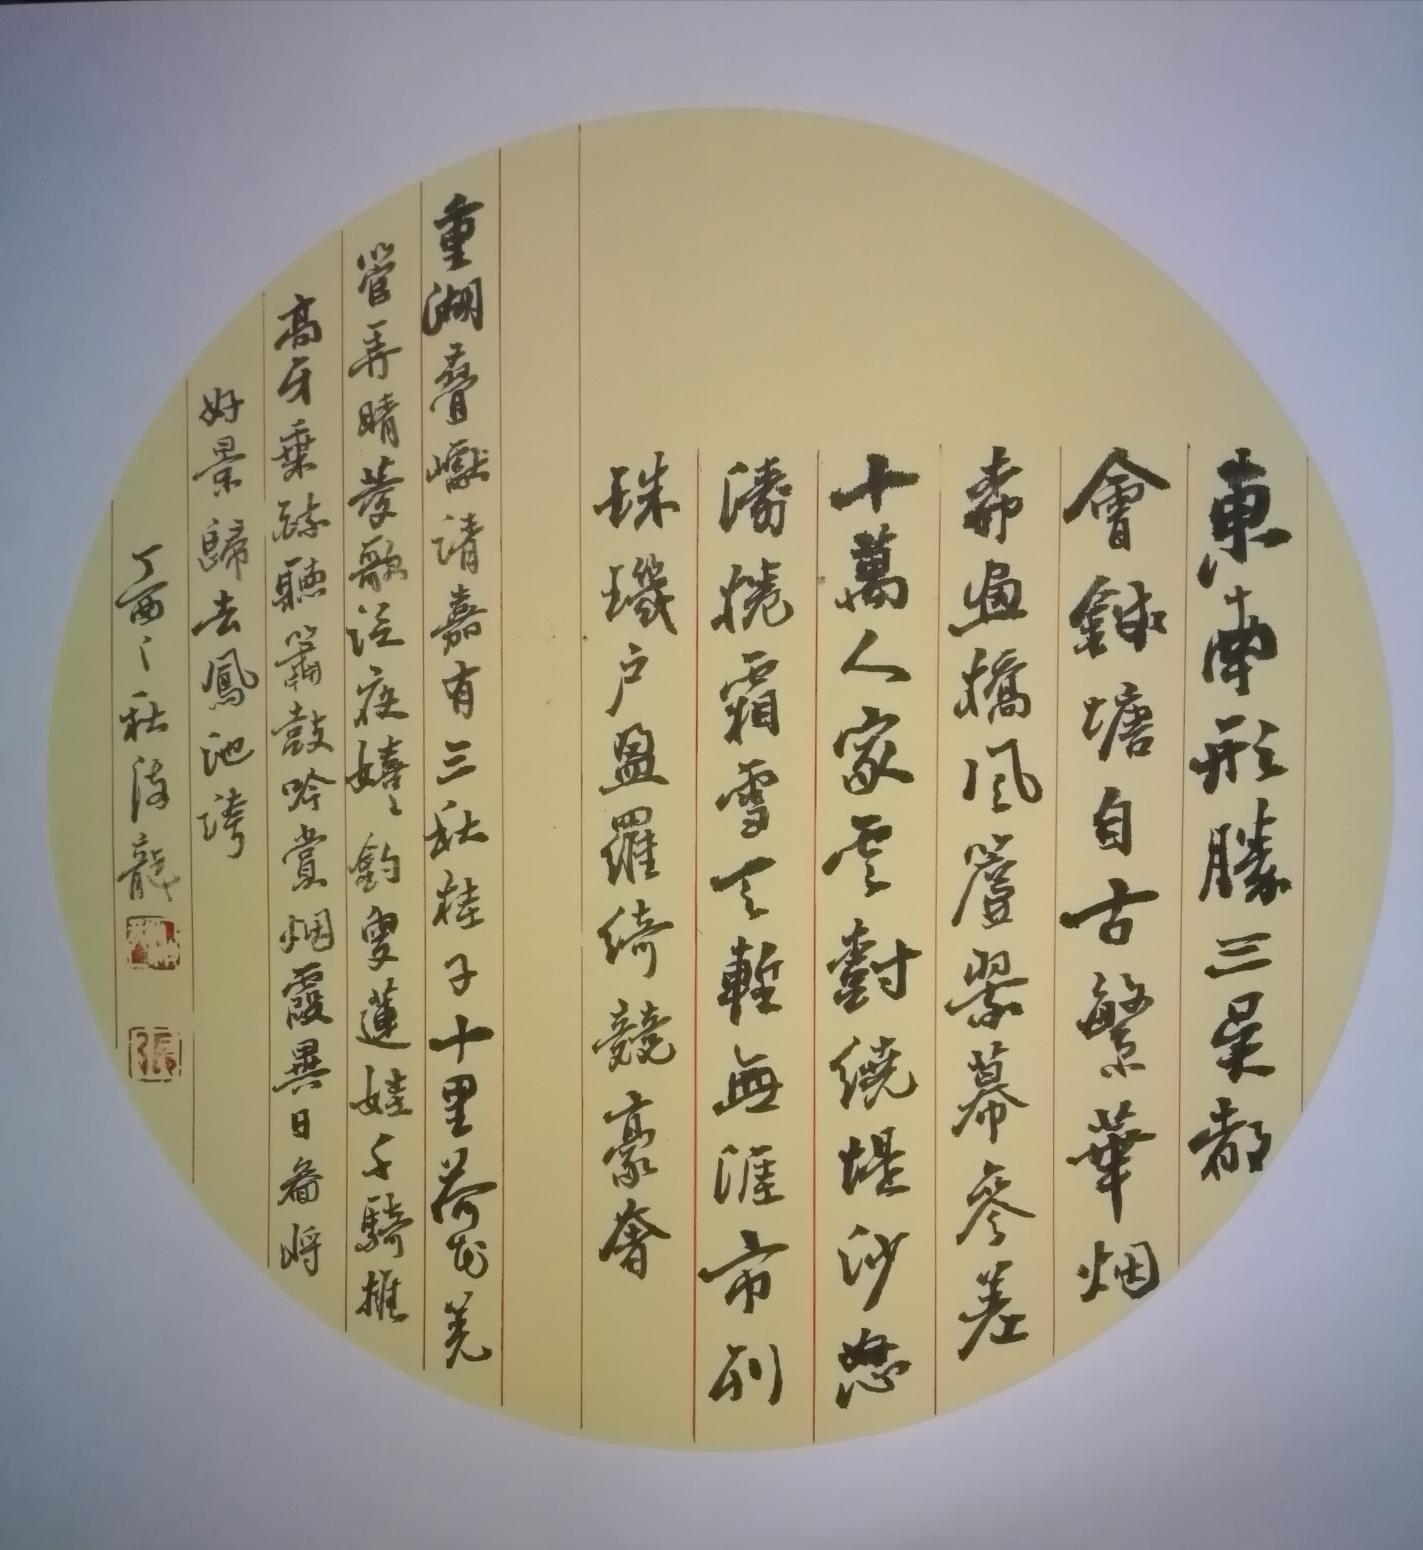 東南形勝三吳都
會錢塘自古繁華烟
柳畫橋風簷翠幕參差
十萬人家雲對繞堤沙怒
濤捲霜雪天塹無涯市列
珠璣戶盈羅綺競豪奢
重湖疊巘清嘉有三秋桂子十里荷花羌
管弄晴菱歌泛夜嬉嬉釣叟蓮娃千騎擁
高牙乘醉聽簫鼓吟賞烟霞異日圖將
好景歸去鳳池誇
丁酉之秋海龍
張